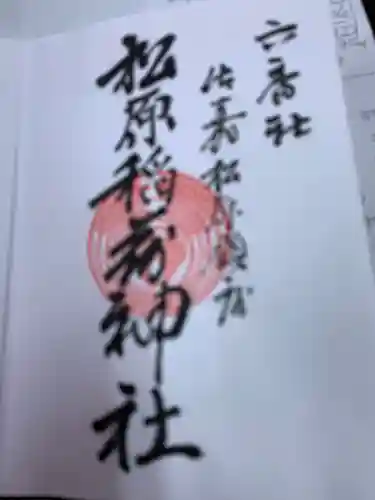 六斎社
佐嘉松原鎮座
松原稲荷神社